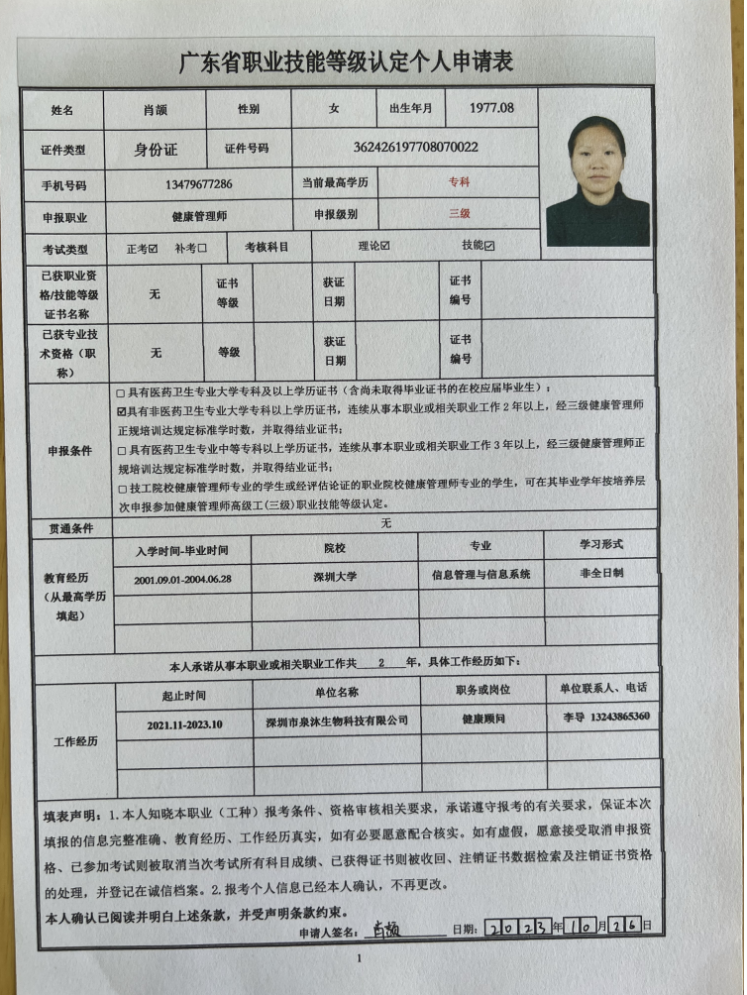 广东省职业技能等级认定个人申请表
姓名 肖颜 性别 女 出生年月 1977.08
证件类型 身份证 证件号码 362426197708070022
手机号码 13479677286 当前最高学历 专科
申报职业 健康管理师 申报级别 三级
考试类型 正考☑ 补考☐ 考核科目 理论☑ 技能☑
已获职业资格/技能等级证书名称 无 证书等级 获证日期 证书编号
已获专业技术资格（职称） 无 等级 获证日期 证书编号
申报条件
☐具有医药卫生专业大学专科及以上学历证书（含尚未取得毕业证书的在校应届毕业生）；
☑具有非医药卫生专业大学专科以上学历证书，连续从事本职业或相关职业工作2年以上，经三级健康管理师
正规培训达规定标准学时数，并取得结业证书；
☐具有医药卫生专业中等专科以上学历证书，连续从事本职业或相关职业工作3年以上，经三级健康管理师正
规培训达规定标准学时数，并取得结业证书；
☐技工院校健康管理师专业的学生或经评估论证的职业院校健康管理师专业的学生，可在其毕业学年按培养层
次申报参加健康管理师高级工(三级)职业技能等级认定。
贯通条件 无
教育经历（从最高学历填起）
入学时间-毕业时间 院校 专业 学习形式
2001.09.01-2004.06.28 深圳大学 信息管理与信息系统 非全日制
本人承诺从事本职业或相关职业工作共 2 年，具体工作经历如下：
工作经历
起止时间 单位名称 职务或岗位 单位联系人、电话
2021.11-2023.10 深圳市泉沐生物科技有限公司 健康顾问 李导 13243865360
填表声明：1.本人知晓本职业（工种）报考条件、资格审核相关要求，承诺遵守报考的有关要求，保证本次
填报的信息完整准确、教育经历、工作经历真实，如有必要愿意配合核实。如有虚假，愿意接受取消申报资
格、已参加考试则被取消当次考试所有科目成绩、已获得证书则被收回、注销证书数据检索及注销证书资格
的处理，并登记在诚信档案。2.报考个人信息已经本人确认，不再更改。
本人确认已阅读并明白上述条款，并受声明条款约束。
申请人签名：肖颜 日期：2023年10月26日
1